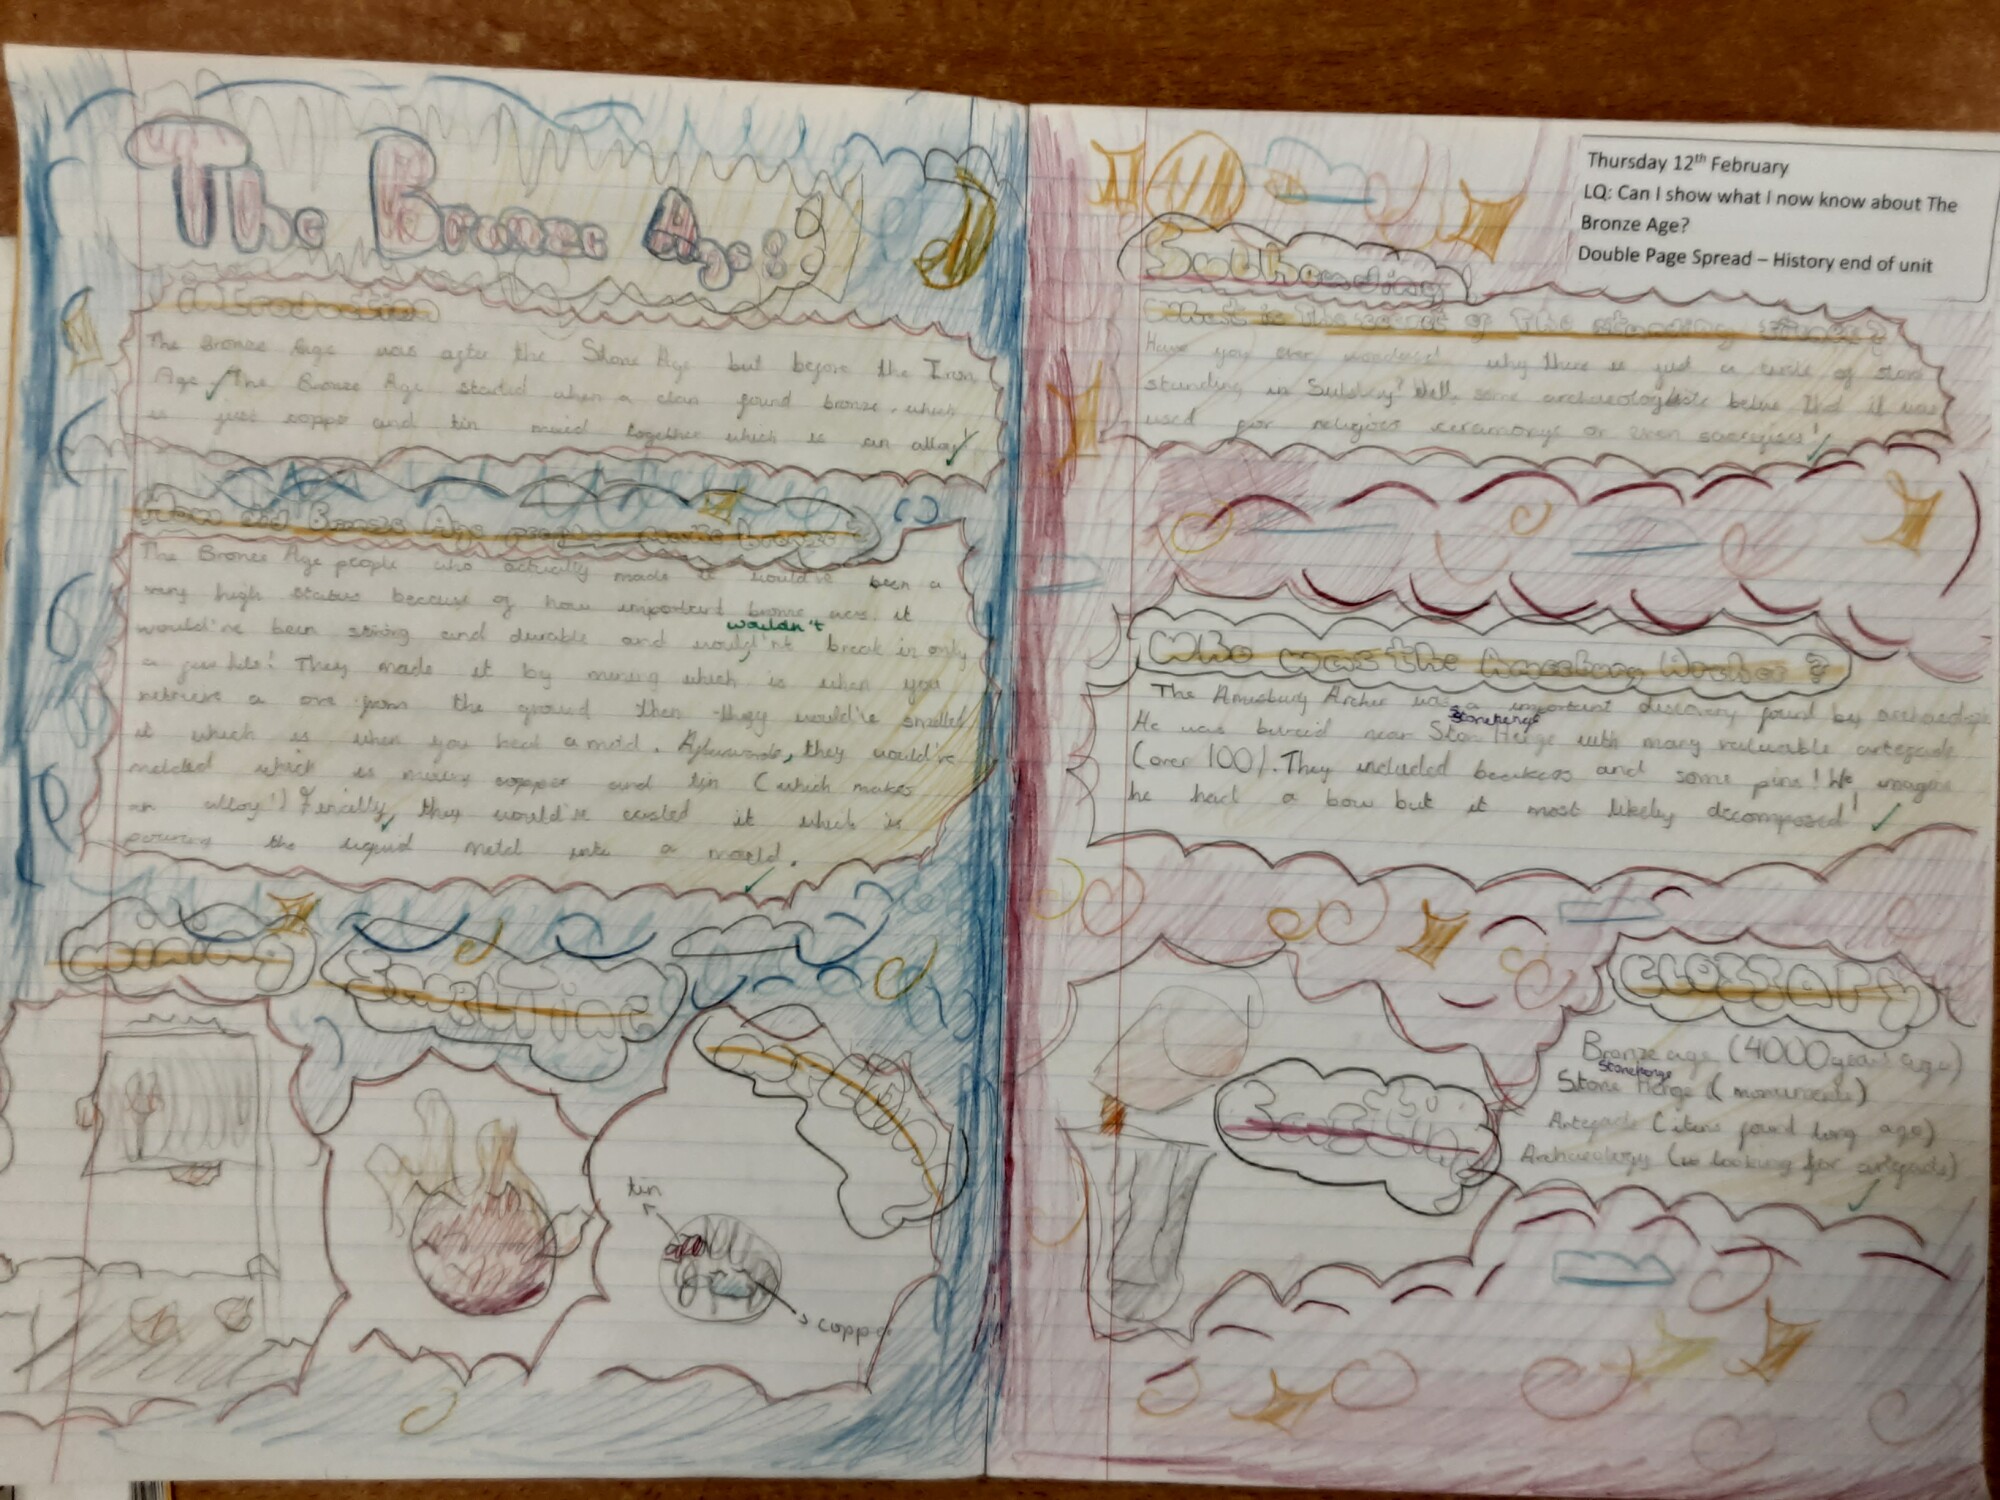 The Bronze Age:
introduction
The Bronze Age was after the Stone Age but before the Iron
Age, The Bronze Age started when a clan found bronze, which
is just copper and tin mixed together which is an alloy!
How did Bronze Age people make bronze?
The Bronze Age people who actually made it would've been a
very high status because of how important bronze was. it
wouldn't
would've been strong and durable and would'nt break in only
a few hits! They made it by mining which is when you
retrieve a ore from the ground then they would've smelted
it which is when you heat a metal. Afterwards, they would've
melded which is mixing copper and tin (which makes
an alloy!) Finally, they would've casted it which is
pouring the liquid metal into a mould.
mining
SmelTing
tin
copper
Thursday 12th February
LQ: Can I show what I now know about The
Bronze Age?
Double Page Spread – History end of unit
Subheading
What is the secret of The standing stones?
Have you ever wondered why there is just a circle of
standing in Well, some believe that it was
used for religios ceramonys or even
Who was the Amesbury Archer?
The Amesbury Archer was a important discovery found by
Stonehenge
He was buried near Ston Henge with many valuable
(over 100). They included beakers and some pins! We imagine
he had a bow but it most likely decomposed!
GLOSSARY
Bronze age (4000 years ago)
Stonehenge
Stone Henge (monument)
(items found long ago)
Archaeology (is looking for
Casting